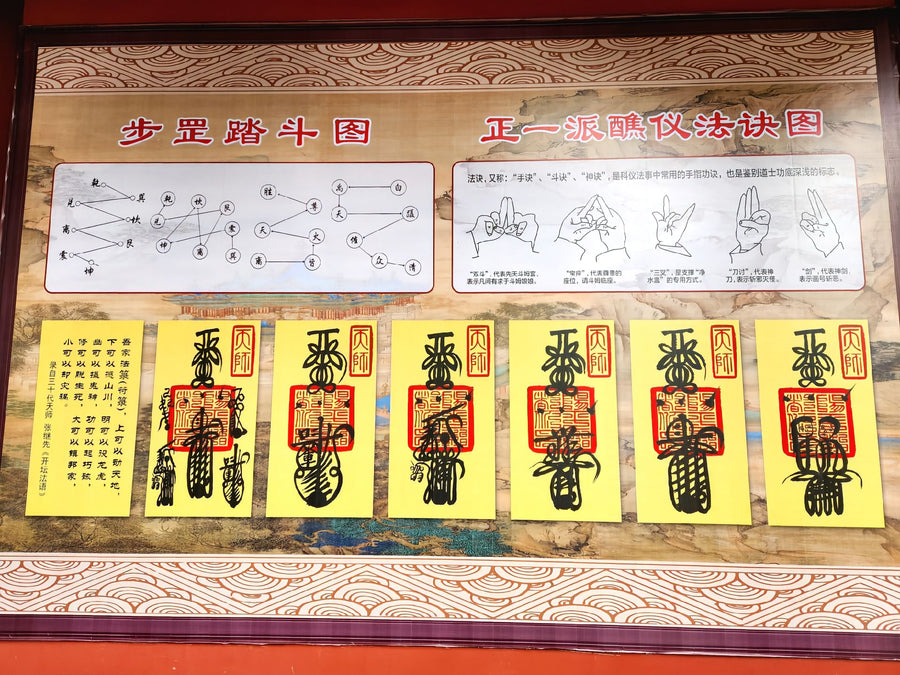 步罡踏斗图
正一派醮仪法诀图
乾
巽
兑
坎
离
艮
震
坤
乾
坎
艮
兑
震
坤
离
巽
胜
天
大
禹
白
天
众
清
法诀，又称：“手诀”、“斗诀”、“神诀”，是科仪法事中常用的手指功诀，也是鉴别道士功底深浅的标志。
“苏斗”，代表先天斗姆宫，
表示凡间有求于斗姆娘娘。
座位，请斗姆临座。
“三叉”，是支撑“净
水盂”的专用方式。
“刀讨”，代表神
刀，表示斩邪灭怪。
“剑”，代表神剑，
表示画号斩恶。
吾家法箓(符箓)，上可以动天地，
下可以撼山川，明可以役龙虎，
幽可以摄鬼神，功可以起朽骸，
修可以脱生死，大可以镇邦家，
小可以却灾祸。
录自三十代天师 张继先《开坛法语》
天师
天师
天师
天师
天师
天师